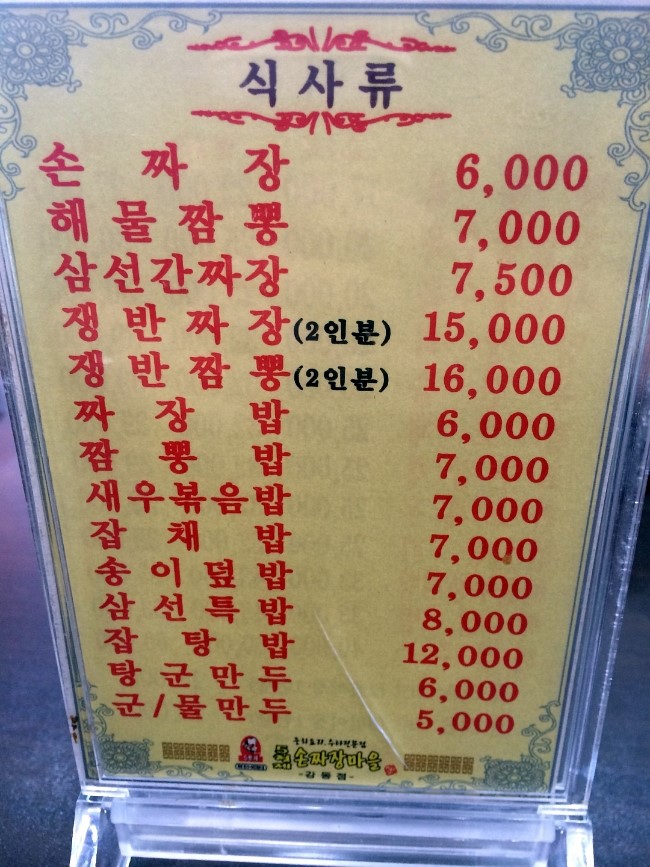 식사류
손짜장 6,000
해물짬뽕 7,000
삼선간짜장 7,500
쟁반짜장(2인분) 15,000
쟁반짬뽕(2인분) 16,000
짜장밥 6,000
짬뽕밥 7,000
새우볶음밥 7,000
잡채밥 7,000
송이덮밥 7,000
삼선특밥 8,000
잡탕밥 12,000
탕군만두 6,000
군/물만두 5,000
손짜장마을